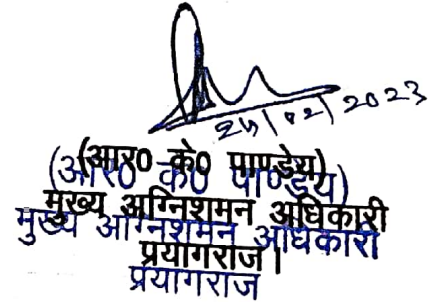 25/02/2023
(आर0 के0 पाण्डेय)
(आर0 के0 पाण्डेय)
मुख्य अग्निशमन अधिकारी
मुख्य अग्निशमन अधिकारी
प्रयागराज।
प्रयागराज